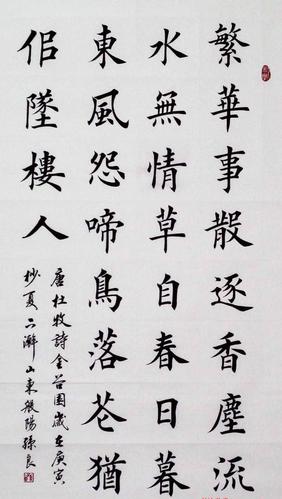 繁華事散逐香塵流
水無情草自春日暮
東風怨啼鳥落花猶
佀墜樓人
唐杜牧詩金谷園歲在庚寅
杪夏 山東 陽孫良